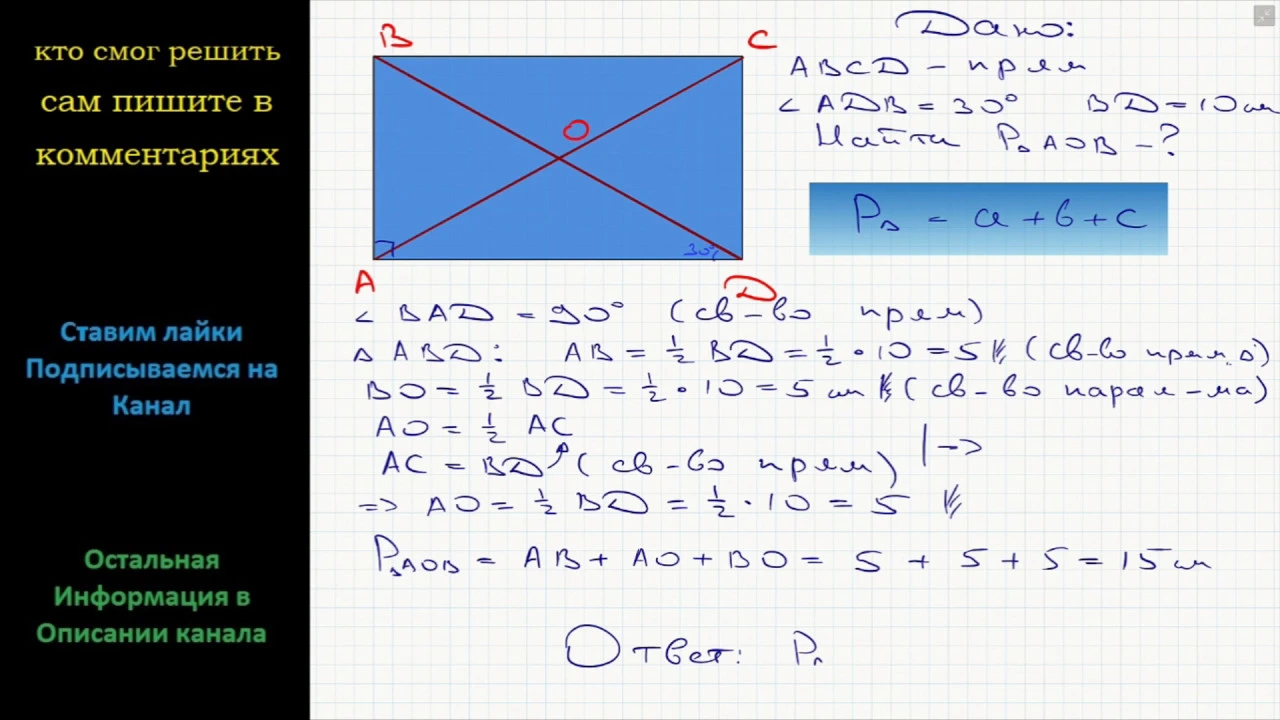 кто смог решить
сам пишите в
комментариях
Ставим лайки
Подписываемся на
Канал
Остальная
Информация в
Описании канала
B
C
O
A
D
30°
Дано:
ABCD - прям
∠ ADB = 30° BD = 10 см
Найти P△AOB - ?
P△ = a + b + c
∠ BAD = 90° (св-во прям)
△ ABD: AB = ½ BD = ½ · 10 = 5 (св-во прям. △)
BO = ½ BD = ½ · 10 = 5 см (св-во парал-ма)
AO = ½ AC
AC = BD (св-во прям) | =>
=> AO = ½ BD = ½ · 10 = 5
P△AOB = AB + AO + BO = 5 + 5 + 5 = 15 см
Ответ: P△